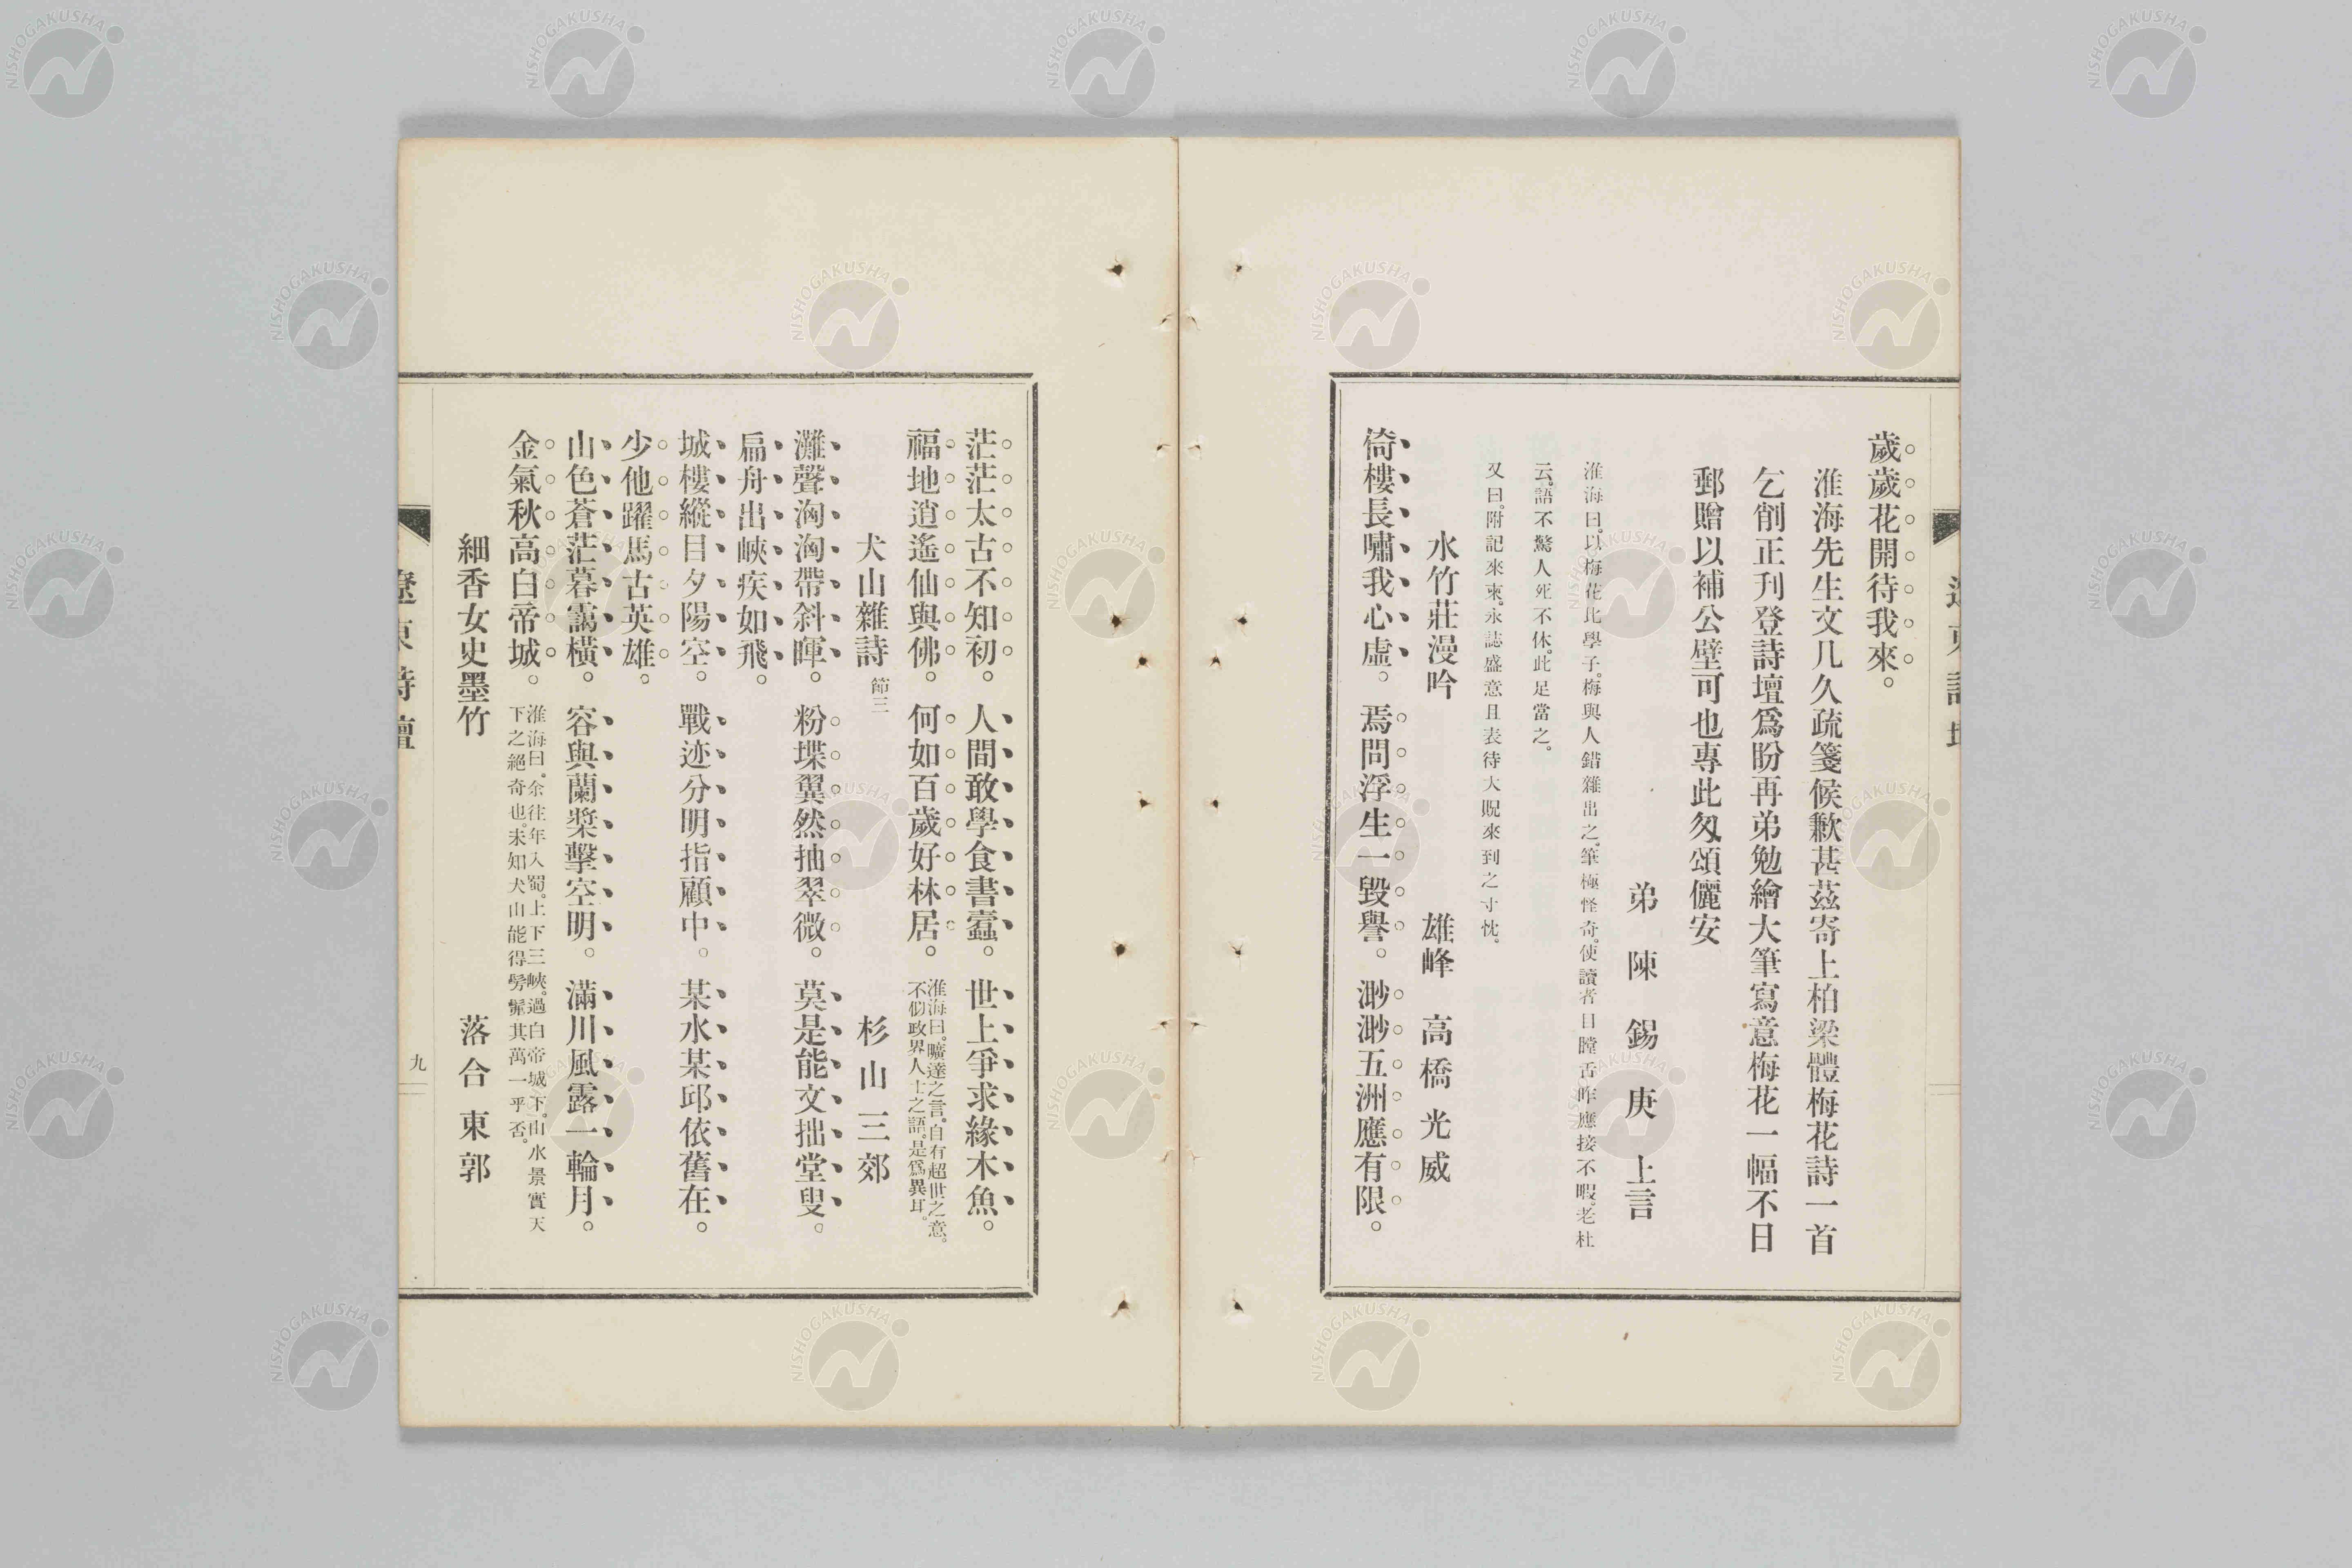 遼東詩壇
歲歲花開待我來。
淮海先生文几久疏箋候歉甚茲寄上柏梁體梅花詩一首
乞削正刋登詩壇爲盼再弟勉繪大筆寫意梅花一幅不日
郵贈以補公壁可也專此匆頌儷安
弟 陳 錫 庚 上言
淮海曰。以梅花比學子。梅與人錯雜出之。筆極怪奇。使讀者目瞠舌咋應接不暇。老杜
云。語不驚人死不休。此足當之。
又曰。附記來柬。永誌盛意且表待大貺來到之寸忱。
水竹莊漫吟 雄峰 高橋光威
倚樓長嘯我心虛。焉問浮生一毀譽。渺渺五洲應有限。
茫茫太古不知初。人間敢學食書蠹。世上爭求緣木魚。
福地逍遙仙與佛。何如百歲好林居。淮海曰。曠達之言。自有超世之意。
不似政界人士之語。是爲異耳。
犬山雜詩 節三 杉山三郊
灘聲洶洶帶斜暉。粉堞翼然抽翠微。莫是能文拙堂叟。
扁舟出峽疾如飛。
城樓縱目夕陽空。戰迹分明指顧中。某水某邱依舊在。
少他躍馬古英雄。
山色蒼茫暮靄橫。容與蘭槳擊空明。滿川風露一輪月。
金氣秋高白帝城。淮海曰。余往年入蜀。上下三峽。過白帝城下。山水景實天
下之絕奇也。未知犬山能得髣髴其萬一乎否。
細香女史墨竹 落合東郭
遼東詩壇
九
NISHOGAKUSHA